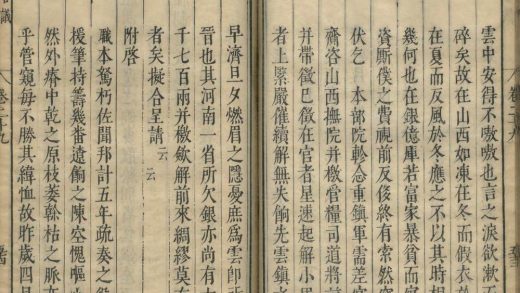 雲中安得不嗷嗷也言之淚欲漱
碎矣故在山西如凍在冬而假衣於
在夏而反風於冬應之不以其時相
幾何也在銀億庫若富家暴貧而
資廝僕之費視前反侈終有索然
伏乞 本部院軫念重鎮軍需差
齎咨山西撫院并檄管糧司道將
并帶徵已徵在官者星速起解小
者上緊嚴催續解無失餉先雲鎮
早濟旦夕燃眉之隱憂庶為雲即
晉也其河南一省所欠銀亦尚有
千七百兩并檄歛解前來綢繆莫
者矣擬合呈請云云
附啓
職本駑朽佐閫邦計五年疏奏之
援筆持籌幾番遠餉之陳空愧嘔
然外瘠中乾之原枝萎榦枯之脈
乎管窺每不勝其緯恤故昨歲四